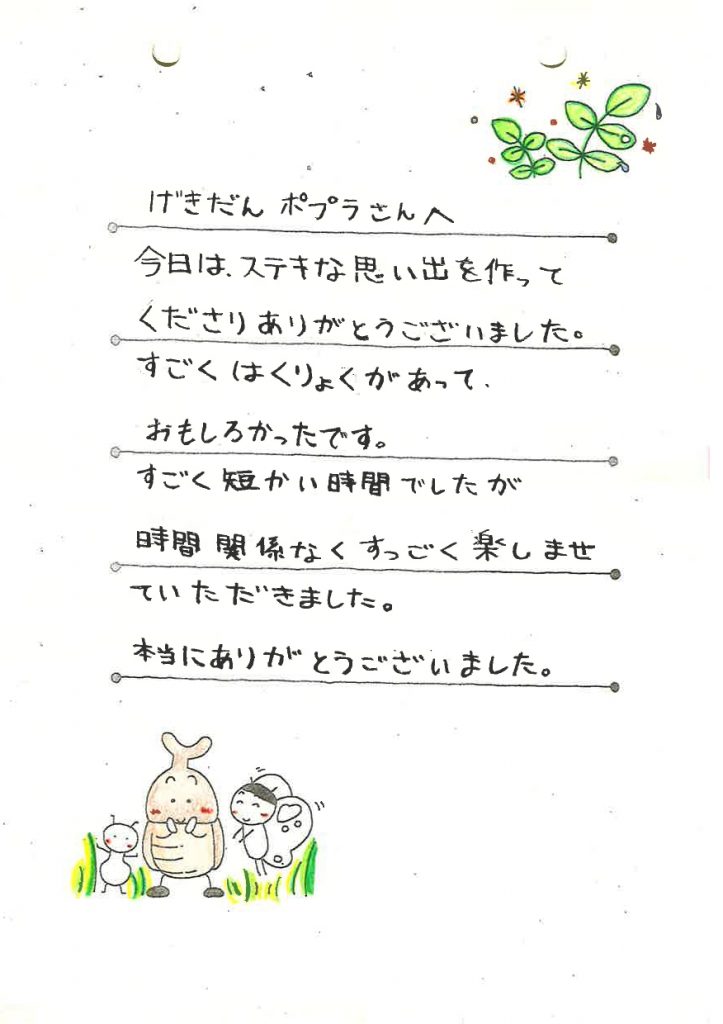 げきだん ポプラさんへ
今日は、ステキな思い出を作って
くださりありがとうございました。
すごくはくりょくがあって、
おもしろかったです。
すごく短かい時間でしたが
時間関係なくすっごく楽しませ
ていただきました。
本当にありがとうございました。